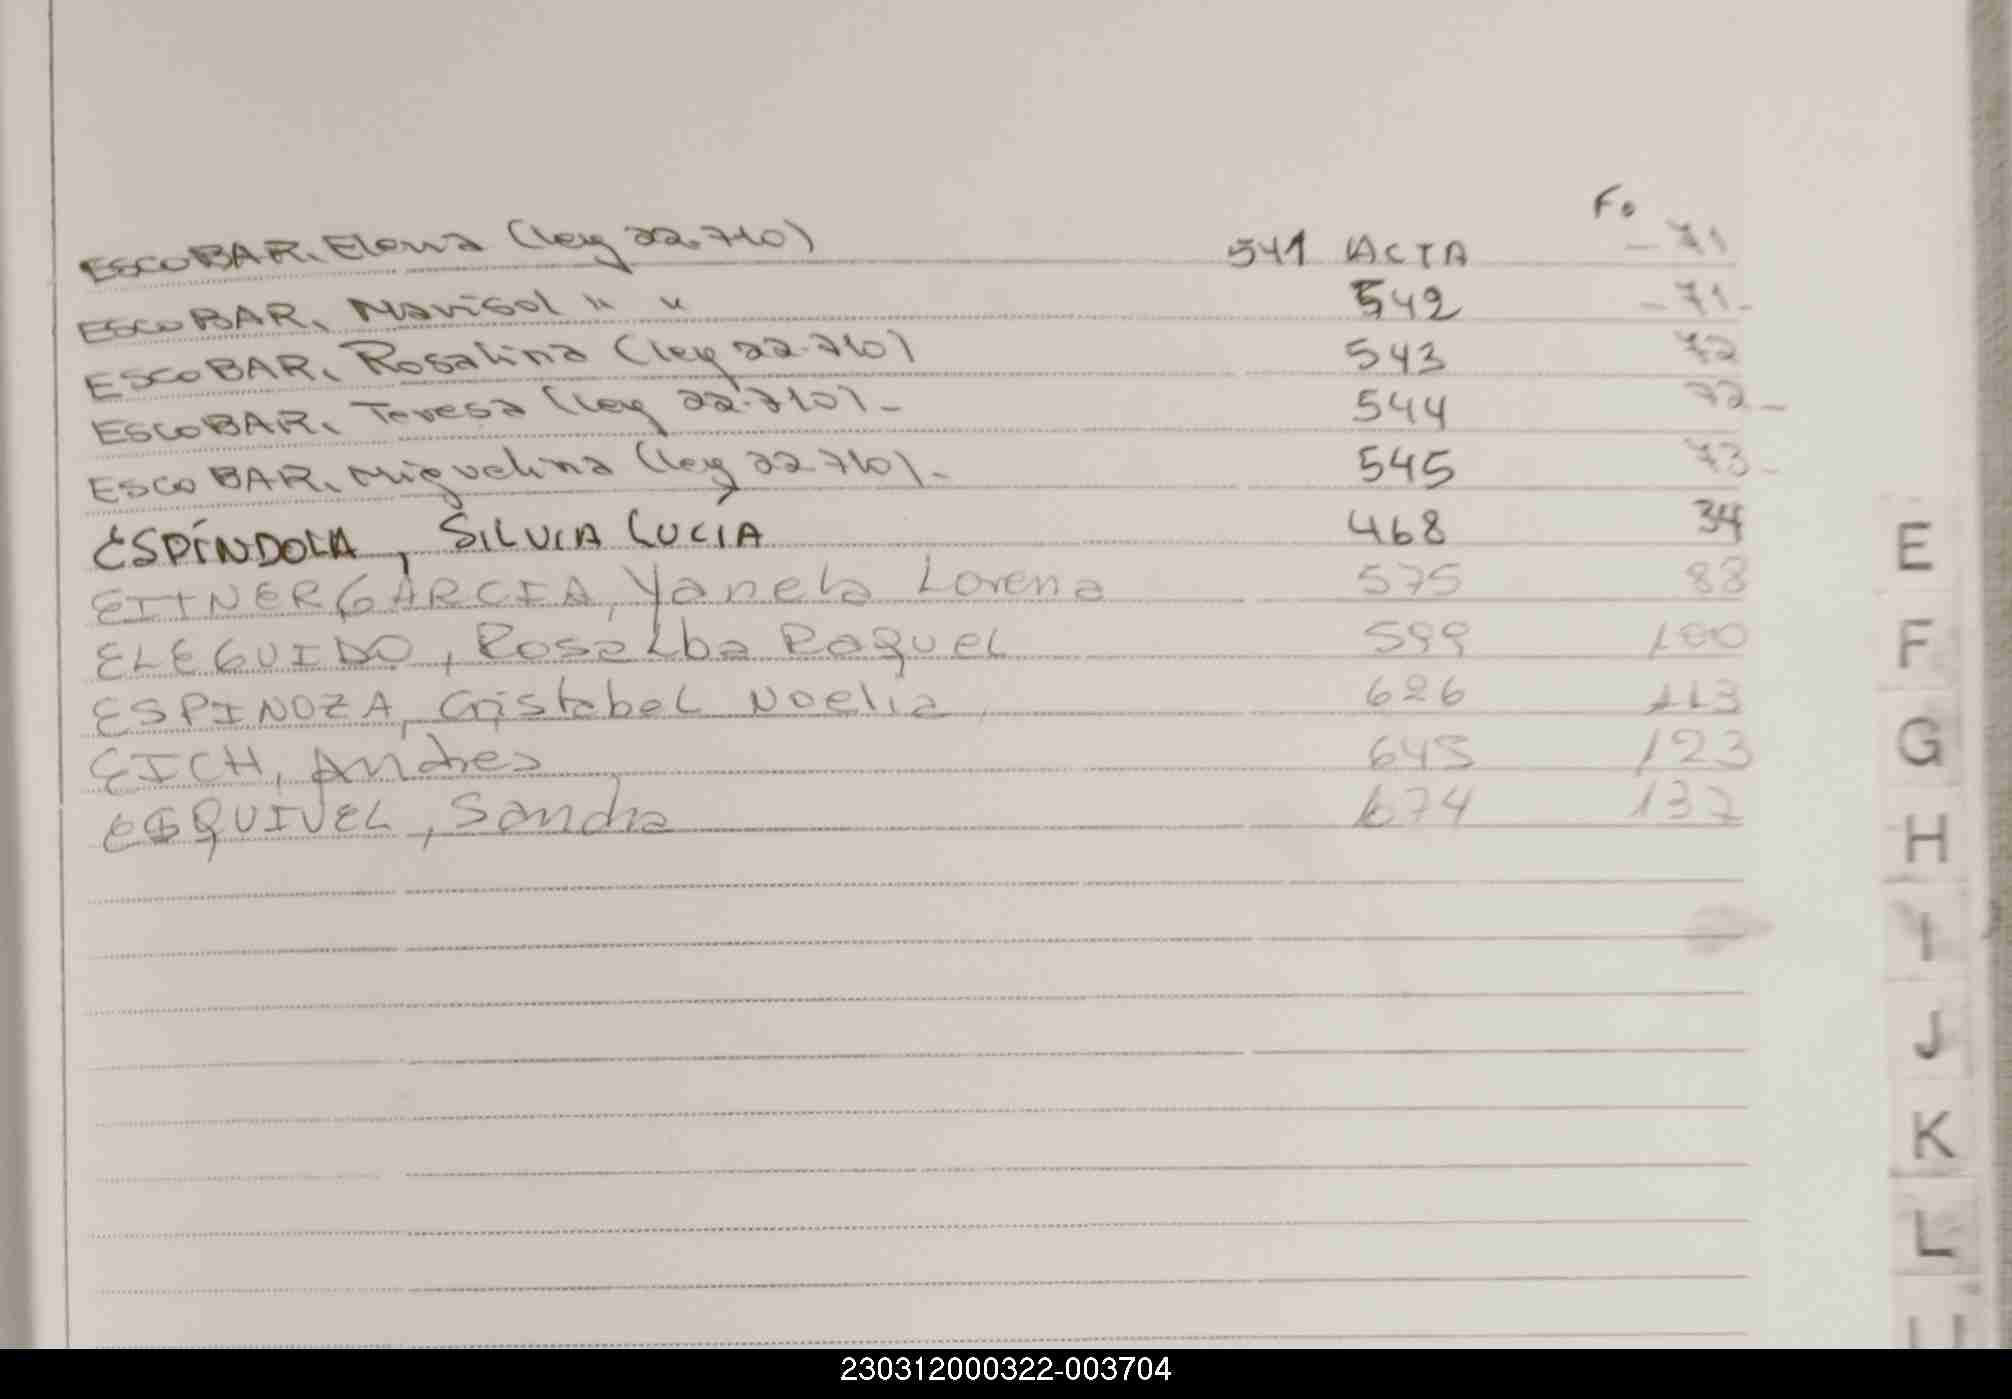 Fo
ESCOBAR, Elena (ley 22.710) 541 ACTA - 71
ESCOBAR, Marisol " " 542 - 71 -
ESCOBAR, Rosalina (ley 22.710) 543 72
ESCOBAR, Teresa (ley 22.710). - 544 72 -
ESCOBAR, Miguelina (ley 22710). - 545 73 -
ESPÍNDOLA, SILVIA LUCIA 468 34
EITTNER GARCIA, Yanela Lorena 575 88
ELEGUIDO, Rosalba Raquel 599 100
ESPINOZA, Cristabel Noelia 626 113
EICH, Andrea 645 123
ESQUIVEL, Sandra 674 137
E
F
G
H
I
J
K
L
230312000322-003704